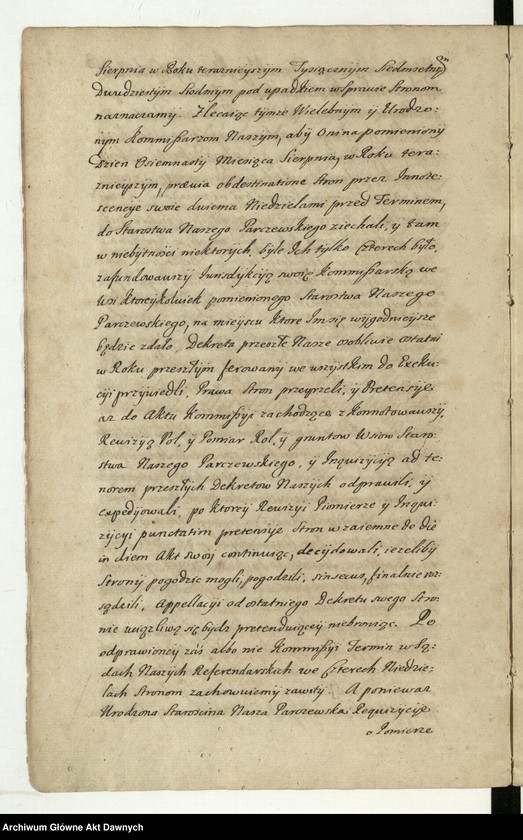 Sierpnia w Roku teraznieyszym Tysiącznym Siedmsetnym
Dwudziestym Siodmym pod upadkiem w Sprawie Stronom
naznaczamy. Zlecaiąc tymze Wielebnym ÿ Urodzo-
nym Kommissarzom Naszym, aby Oni na pomieniony
Dzien Osiemnasty Miesiąca Sierpnia, w Roku tera-
znieyszym, prævia obdestinatione Stron przez Innote-
scencye swoie dwiema Niedzielami przed Terminem,
do Starostwa Naszego Parczewskiego ziechali, y tam
w niebytnosci niektorych, byle Ich tylko Czterech było,
zafundowawszy Jurisdykcyą swoię Kommissarską we
Wsi ktoreykolwiek pomienionego Starostwa Naszego
Parczewskiego, na mieyscu ktore Im się wygodnieysze
będzie zdało, Dekreta przeszłe Nasze osobliwie ostatni
w Roku przeszłym ferowany we wszystkim do Exeku-
cyi przywiedli, Prawa Stron przeyrzeli, y Pretensye
az do Aktu Kommissyi zachodzące zkonnotowawszy,
Rewizyą Pol, y Pomiar Rol, y gruntow Wsiow Staro-
stwa Naszego Parczewskiego, y Inquizycyą ad te-
norem przeszłych Dekretow Naszych odprawili, y
expedyowali, po ktorey Rewizyi Pomierze y Inqui-
zycyi punctatim pretensye Stron wzaiemne de die
in diem Akt swoy continuąc, decydowali, iezeliby
Strony pogodzic mogli, pogodzili, sin secus, finalnie roz-
sądzili, Appellacyi od ostatniego Dekretu swego Stro-
nie uciązliwą się bydz pretenduiącey niebroniąc. Po
odprawioney zaś albo nie Kommissyi Termin w Są-
dach Naszych Referendarskich we Czterech Niedzie-
lach Stronom zachowuiemy zawity. A poniewaz
Urodzona Starościna Nasza Parczewska Requizycye
o Pomierze
Archiwum Główne Akt Dawnych